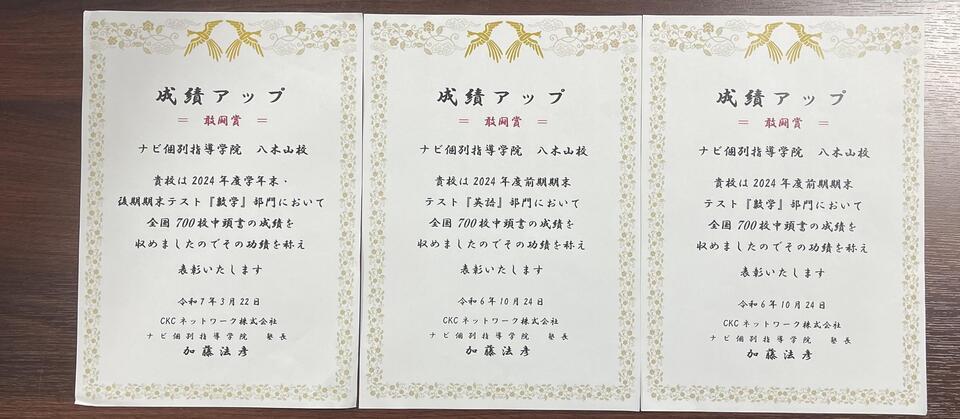 成績アップ
= 敢闘賞 =
ナビ個別指導学院 八木山校
貴校は2024年度学年末・
後期期末テスト『数学』部門において
全国700校中頭書の成績を
収めましたのでその功績を称え
表彰いたします
令和7年3月22日
CKCネットワーク株式会社
ナビ個別指導学院 塾長
加藤法彦
成績アップ
= 敢闘賞 =
ナビ個別指導学院 八木山校
貴校は2024年度前期期末
テスト『英語』部門において
全国700校中頭書の成績を
収めましたのでその功績を称え
表彰いたします
令和6年10月24日
CKCネットワーク株式会社
ナビ個別指導学院 塾長
加藤法彦
成績アップ
= 敢闘賞 =
ナビ個別指導学院 八木山校
貴校は2024年度前期期末
テスト『数学』部門において
全国700校中頭書の成績を
収めましたのでその功績を称え
表彰いたします
令和6年10月24日
CKCネットワーク株式会社
ナビ個別指導学院 塾長
加藤法彦